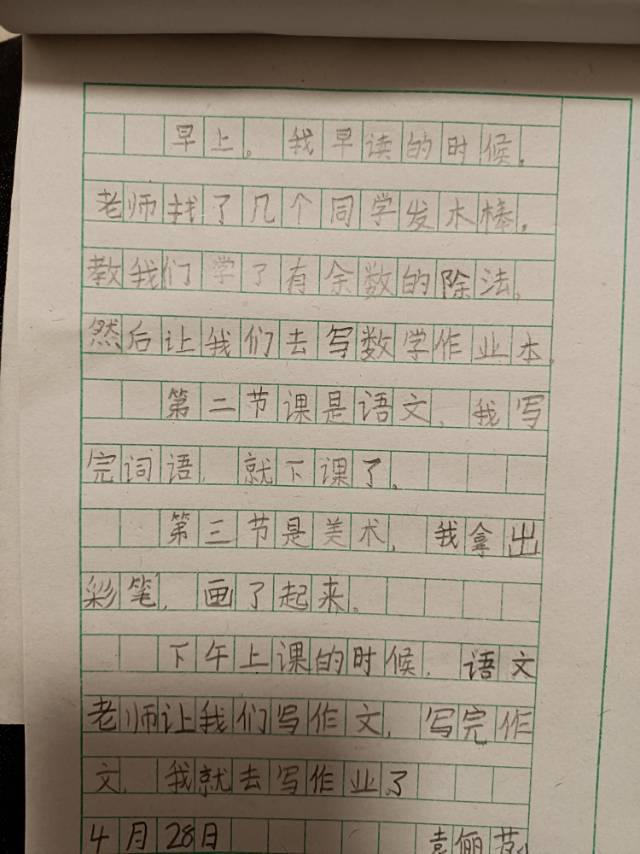 早上。我早读的时候，
老师找了几个同学发木棒，
教我们学了有余数的除法，
然后让我们去写数学作业本。
第二节课是语文，我写
完词语，就下课了。
第三节是美术，我拿出
彩笔，画了起来。
下午上课的时候，语文
老师让我们写作文，写完作
文，我就去写作业了
4月28日 袁俪